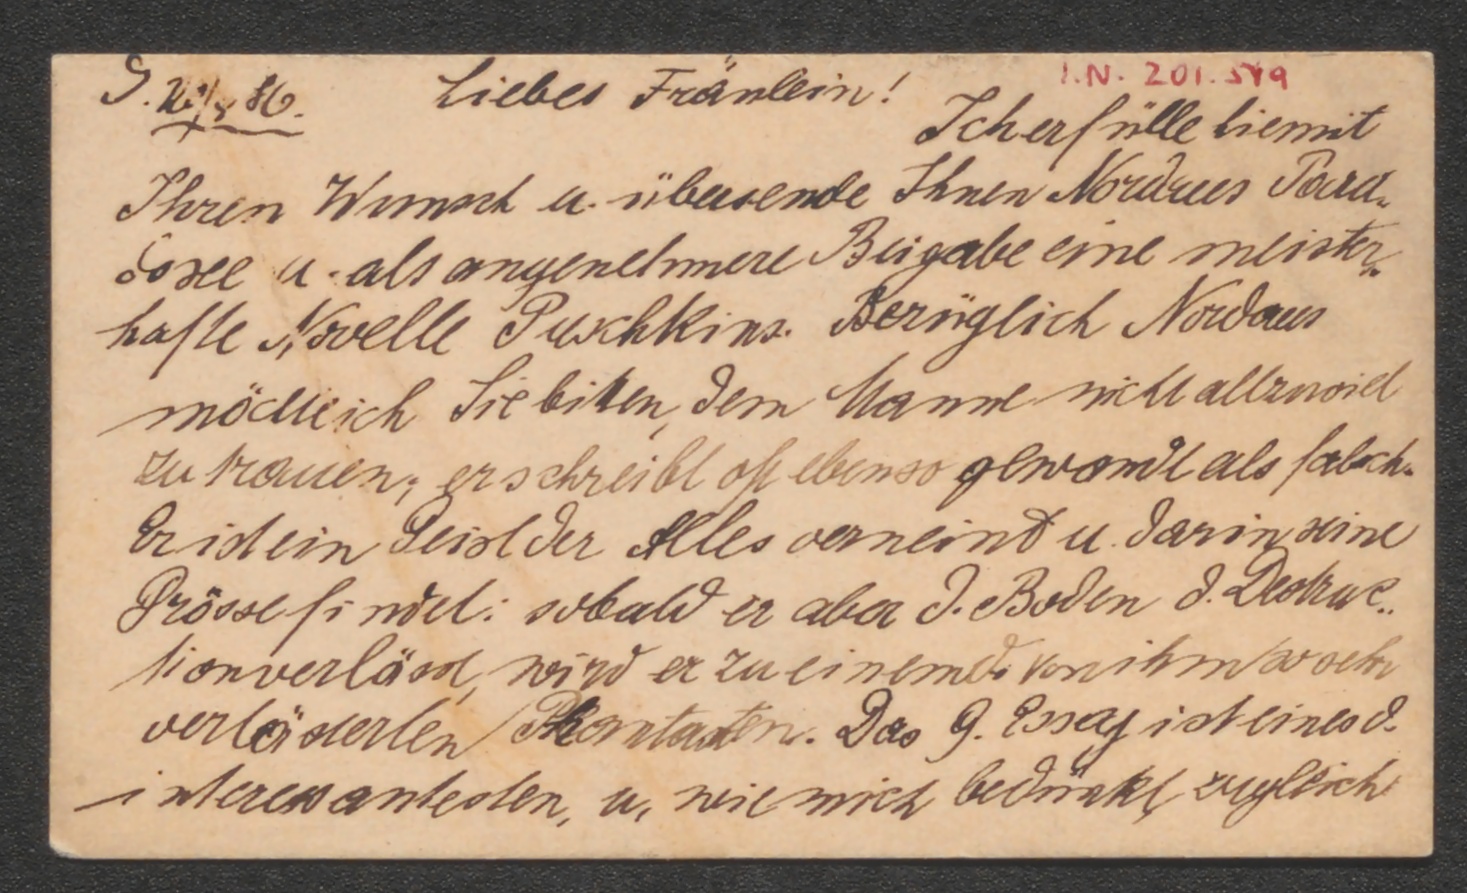 Liebes Fräulein!
I.N. 201.549
Ich erfülle hiemit
Ihren Wunsch u. übersende Ihnen Nordaus Para-
doxe u. als angenehmere Beigabe eine meister-
hafte Novelle Puschkins. Bezüglich Nordaus
möchte ich Sie bitten, dem Manne nicht allzuviel
zu trauen; er schreibt oft ebenso gewandt als falsch.
Er ist ein Geist der Alles verneint u. darin seine
Grösse findet: sobald er aber d. Boden d. Destruc-
tion verlässt, wird er zu einem d. von ihm so sehr
verlästerten Phantasten. Das 9. Essay ist eines d.
interessantesten, u, wie mich bedünkt, zugleich